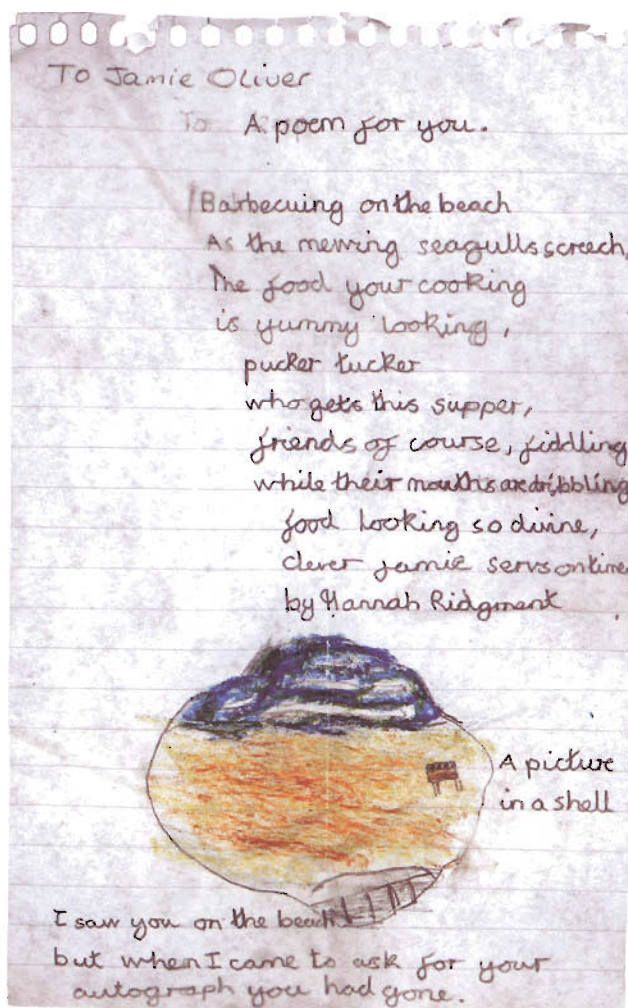 To Jamie Oliver
To A poem for you.
Barbecuing on the beach
As the mewing seagulls screech,
The food your cooking
is yummy looking,
pucker tucker
who gets this supper,
friends of course, fiddling
while their mouths are dribbling
food looking so divine,
clever jamie servs on time
by Hannah Ridgment
A picture
in a shell
I saw you on the beach
but when I came to ask for your
autograph you had gone